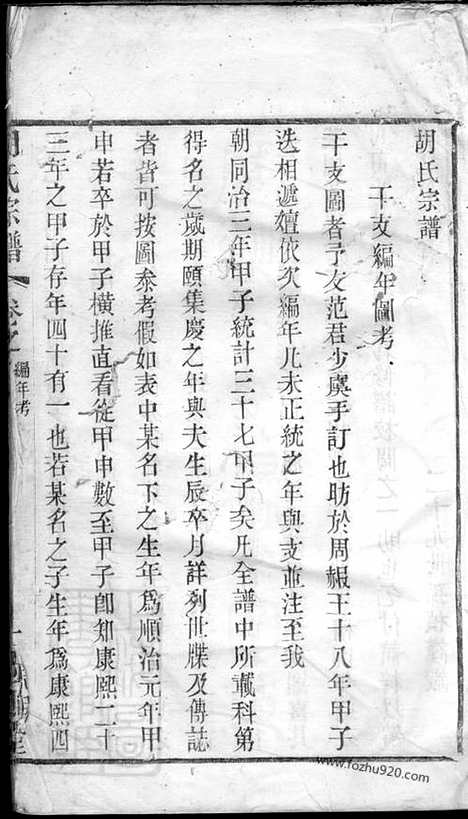 胡氏宗譜
干支編年圖考
干支圖者予友范君少虞手訂也昉於周赧王十八年甲子
迭相遞嬗依次編年凡未正統之年與支並注至我
朝同治三年甲子統計三十七甲子矣凡全譜中所載科第
得名之歲期頤集慶之年與夫生辰卒月詳列世牒及傳誌
者皆可按圖叅考假如表中某名下之生年爲順治元年甲
申若卒於甲子橫推直看從甲申數至甲子卽知康熙二十
三年之甲子存年四十有一也若某名之子生年爲康熙四
氏宗譜
編年考
www.fozhu920.com